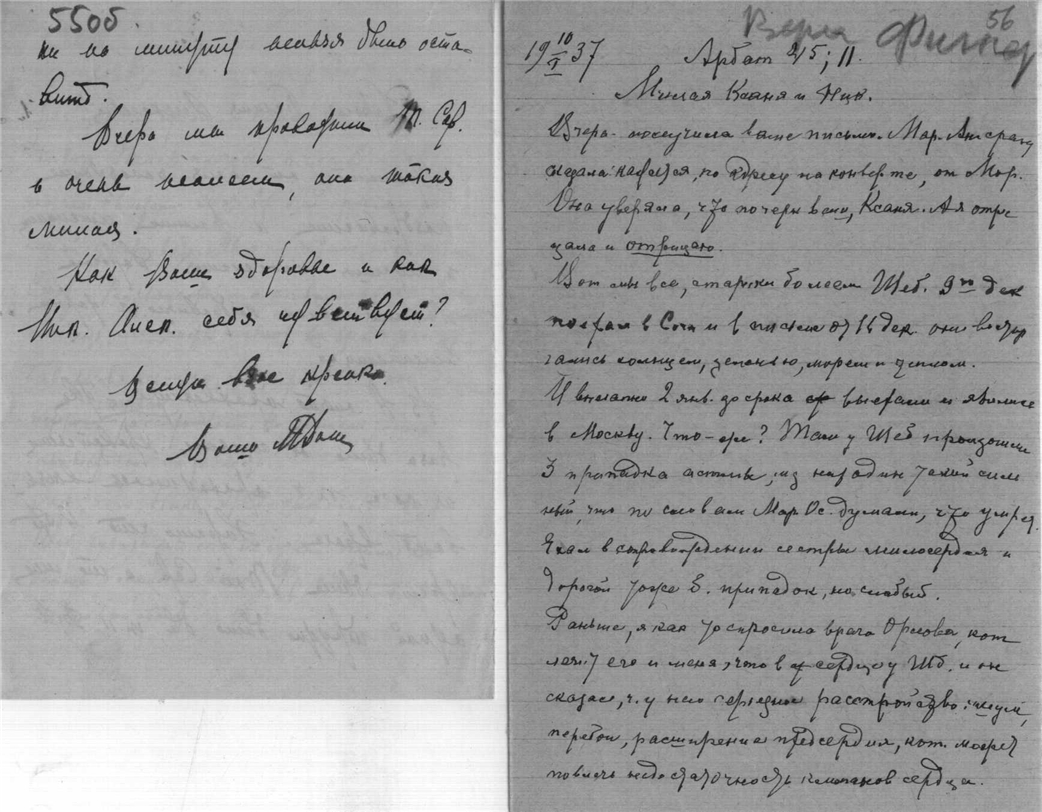 55об
ни на минуту нельзя было оста-
вить.
Вчера мы проводили М. Сер.
и очень жалеем, она такая
милая.
Как Ваше здоровье и как
Ник. Алек. себя чувствует?
Целую вас крепко.
Ваша
56
Вера Фигнер
19 10/I 37 Арбат 45; 11.
Милая Ксаня и Ник.
Вчера получила ваше письмо. Мар. Ан. сразу
сказала по адресу на конверте, от Мор.
Она уверяла, что почерк ваш, Ксаня. А я отри-
цала и отрицаю.
Вот мы все, старики болеем Шеб. 9го дек
поехал в Сочи и в письме от 16 дек. они востор
гались солнцем, зеленью, морем и теплом.
И внезапно 2 янв. до срока выехали и явились
в Москву. Что-же? Там у Шеб произошли
3 припадка астмы, из них один такой силь
ный, что по словам Мар. Ос. думали, что умрет.
Ехал в сопровождении сестры милосердия и
дорогой тоже б. припадок, но слабый.
Раньше, я как то спросила врача Орлова, кот
лечит его и меня, что с сердцем у Шеб. и он
сказал, ч. у него серьезное расстройство: шумы,
перебои, расширение предсердия, кот. может
повлечь недостаточность клапанов сердца.